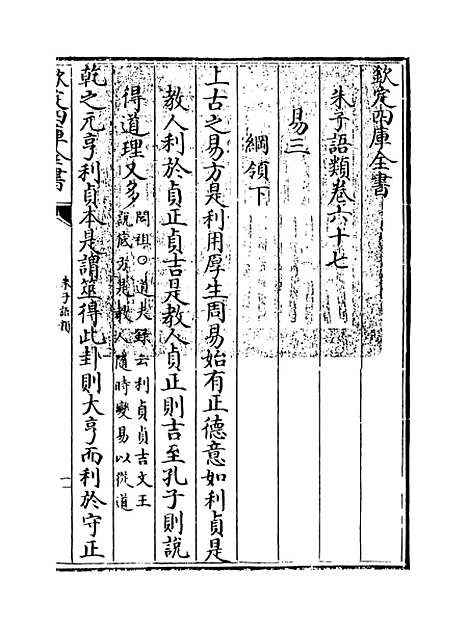 欽定四庫全書
朱子語類卷六十七
易三
綱領下
上古之易方是利用厚生周易始有正德意如利貞是
教人利於貞正貞吉是教人貞正則吉至孔子則說
得道理又多閎祖○道夫錄云利貞貞吉文王
說底方是教人隨時變易以從道
乾之元亨利貞本是謂筮得此卦則大亨而利於守正
欽定四庫全書
朱子語類
一